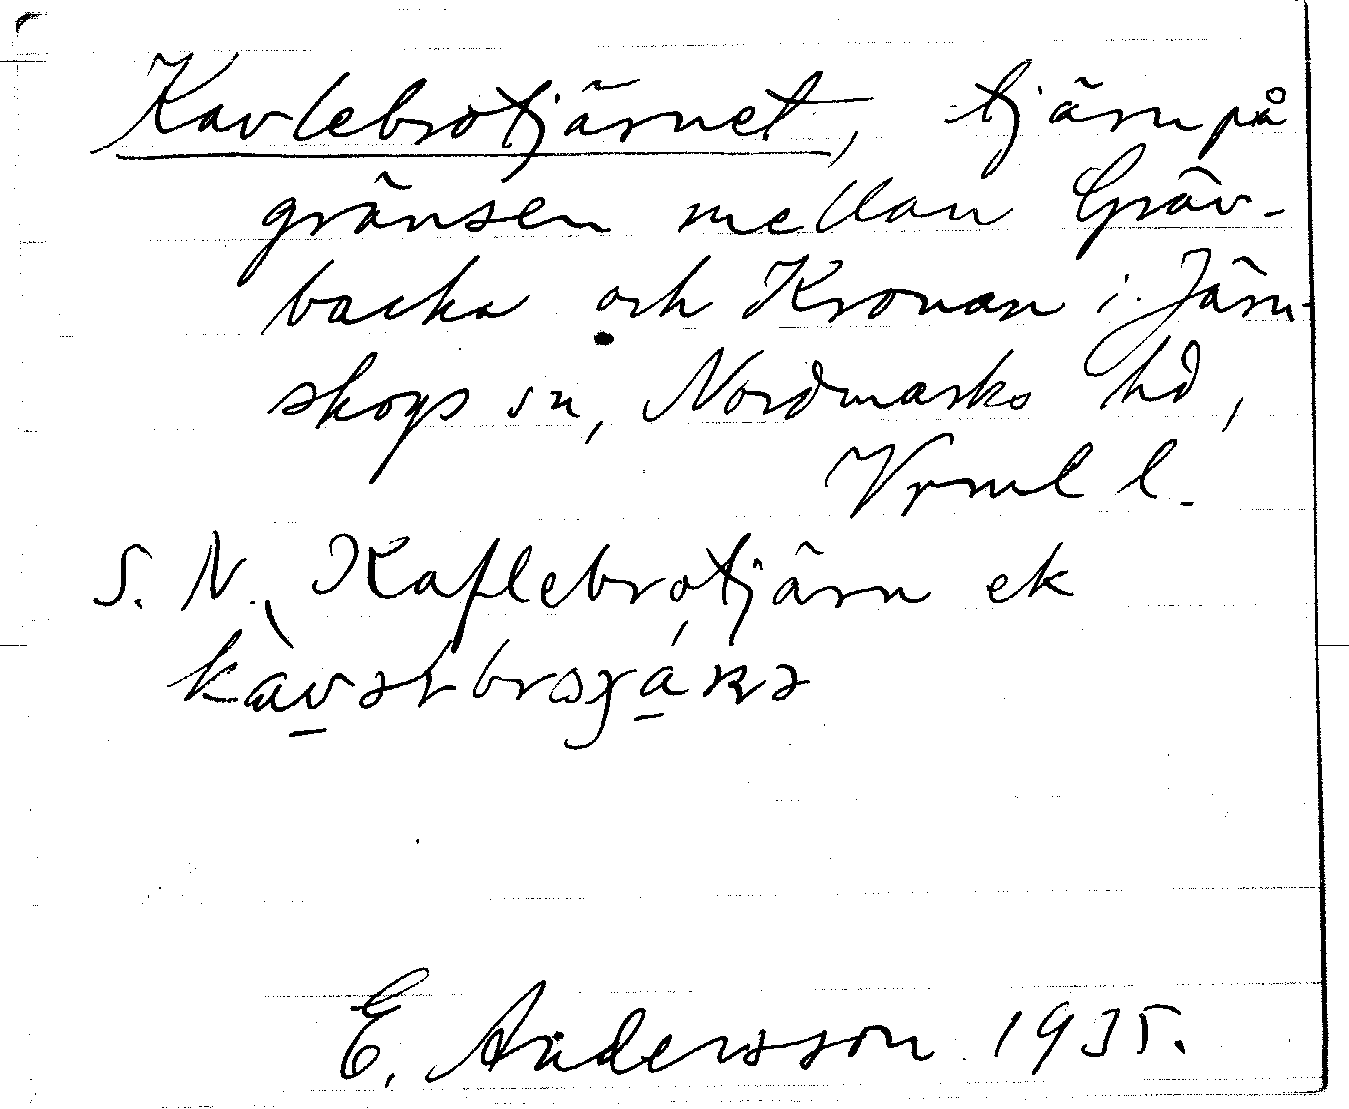 Kavlebrotjärnet, tjärn på
gränsen mellan Gräv-
backa och Kronan i Järn-
skogs sn, Nordmarks hd,
Vrml l.
S. N. Kaflebrotjärn ek
E. Andersson 1935.